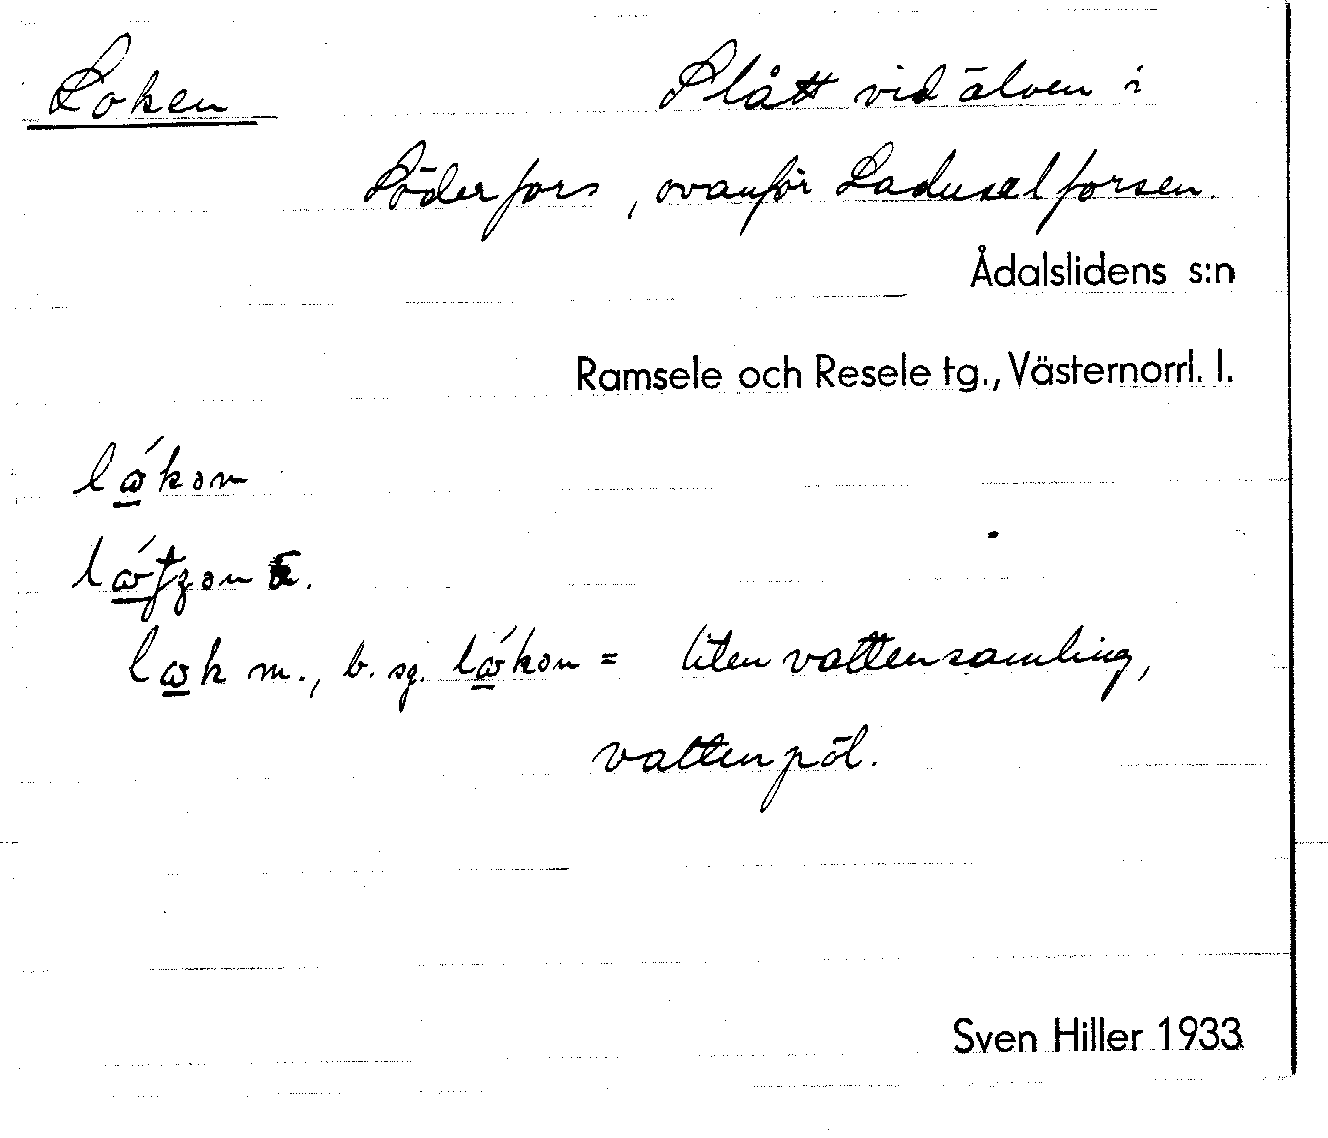 Loken Slått vid älven i
Söderfors, ovanför Laduselforsen.
Ådalslidens s:n
Ramsele och Resele tg., Västernorrl. l.
lώ̲kən
lώ̲tʒən
lω̲k m., b. sg. lώ̲kən = liten vattensamling,
vattenpöl.
Sven Hiller 1933